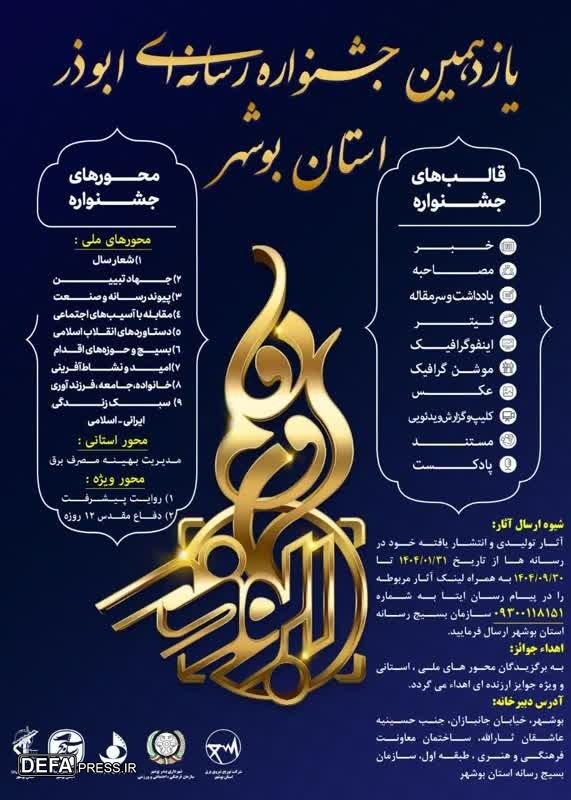 یازدهمین جشنواره رسانه‌ای ابوذر
استان بوشهر
قالب‌های
جشنواره
خبر
مصاحبه
یادداشت و سرمقاله
تیتر
اینفوگرافیک
موشن گرافیک
عکس
کلیپ و گزارش ویدئویی
مستند
پادکست
محورهای
جشنواره
محورهای ملی :
۱) شعار سال
۲) جهاد تبیین
۳) پیوند رسانه و صنعت
۴) مقابله با آسیب‌های اجتماعی
۵) دستاوردهای انقلاب اسلامی
۶) بسیج و حوزه‌های اقدام
۷) امید و نشاط آفرینی
۸) خانواده، جامعه، فرزندآوری
۹) سبک زندگی
ایرانی - اسلامی
محور استانی :
مدیریت بهینه مصرف برق
محور ویژه :
۱) روایت پیشرفت
۲) دفاع مقدس ۱۲ روزه
شیوه ارسال آثار:
آثار تولیدی و انتشار یافته خود در
رسانه ها از تاریخ ۱۴۰۴/۰۱/۳۱ تا
۱۴۰۴/۰۹/۳۰ به همراه لینک آثار مربوطه
را در پیام رسان ایتا به شماره
۰۹۳۰۰۱۱۸۱۵۱ سازمان بسیج رسانه
استان بوشهر ارسال فرمایید.
اهداء جوائز:
به برگزیدگان محور های ملی ، استانی
و ویژه جوایز ارزنده ای اهداء می گردد.
آدرس دبیرخانه:
بوشهر، خیابان جانبازان، جنب حسینیه
عاشقان ثارالله، ساختمان معاونت
فرهنگی و هنری ، طبقه اول، سازمان
بسیج رسانه استان بوشهر
شرکت توزیع نیروی برق
استان بوشهر
شهرداری بندر بوشهر
سازمان فرهنگی، اجتماعی و ورزشی
DEFAPRESS.IR